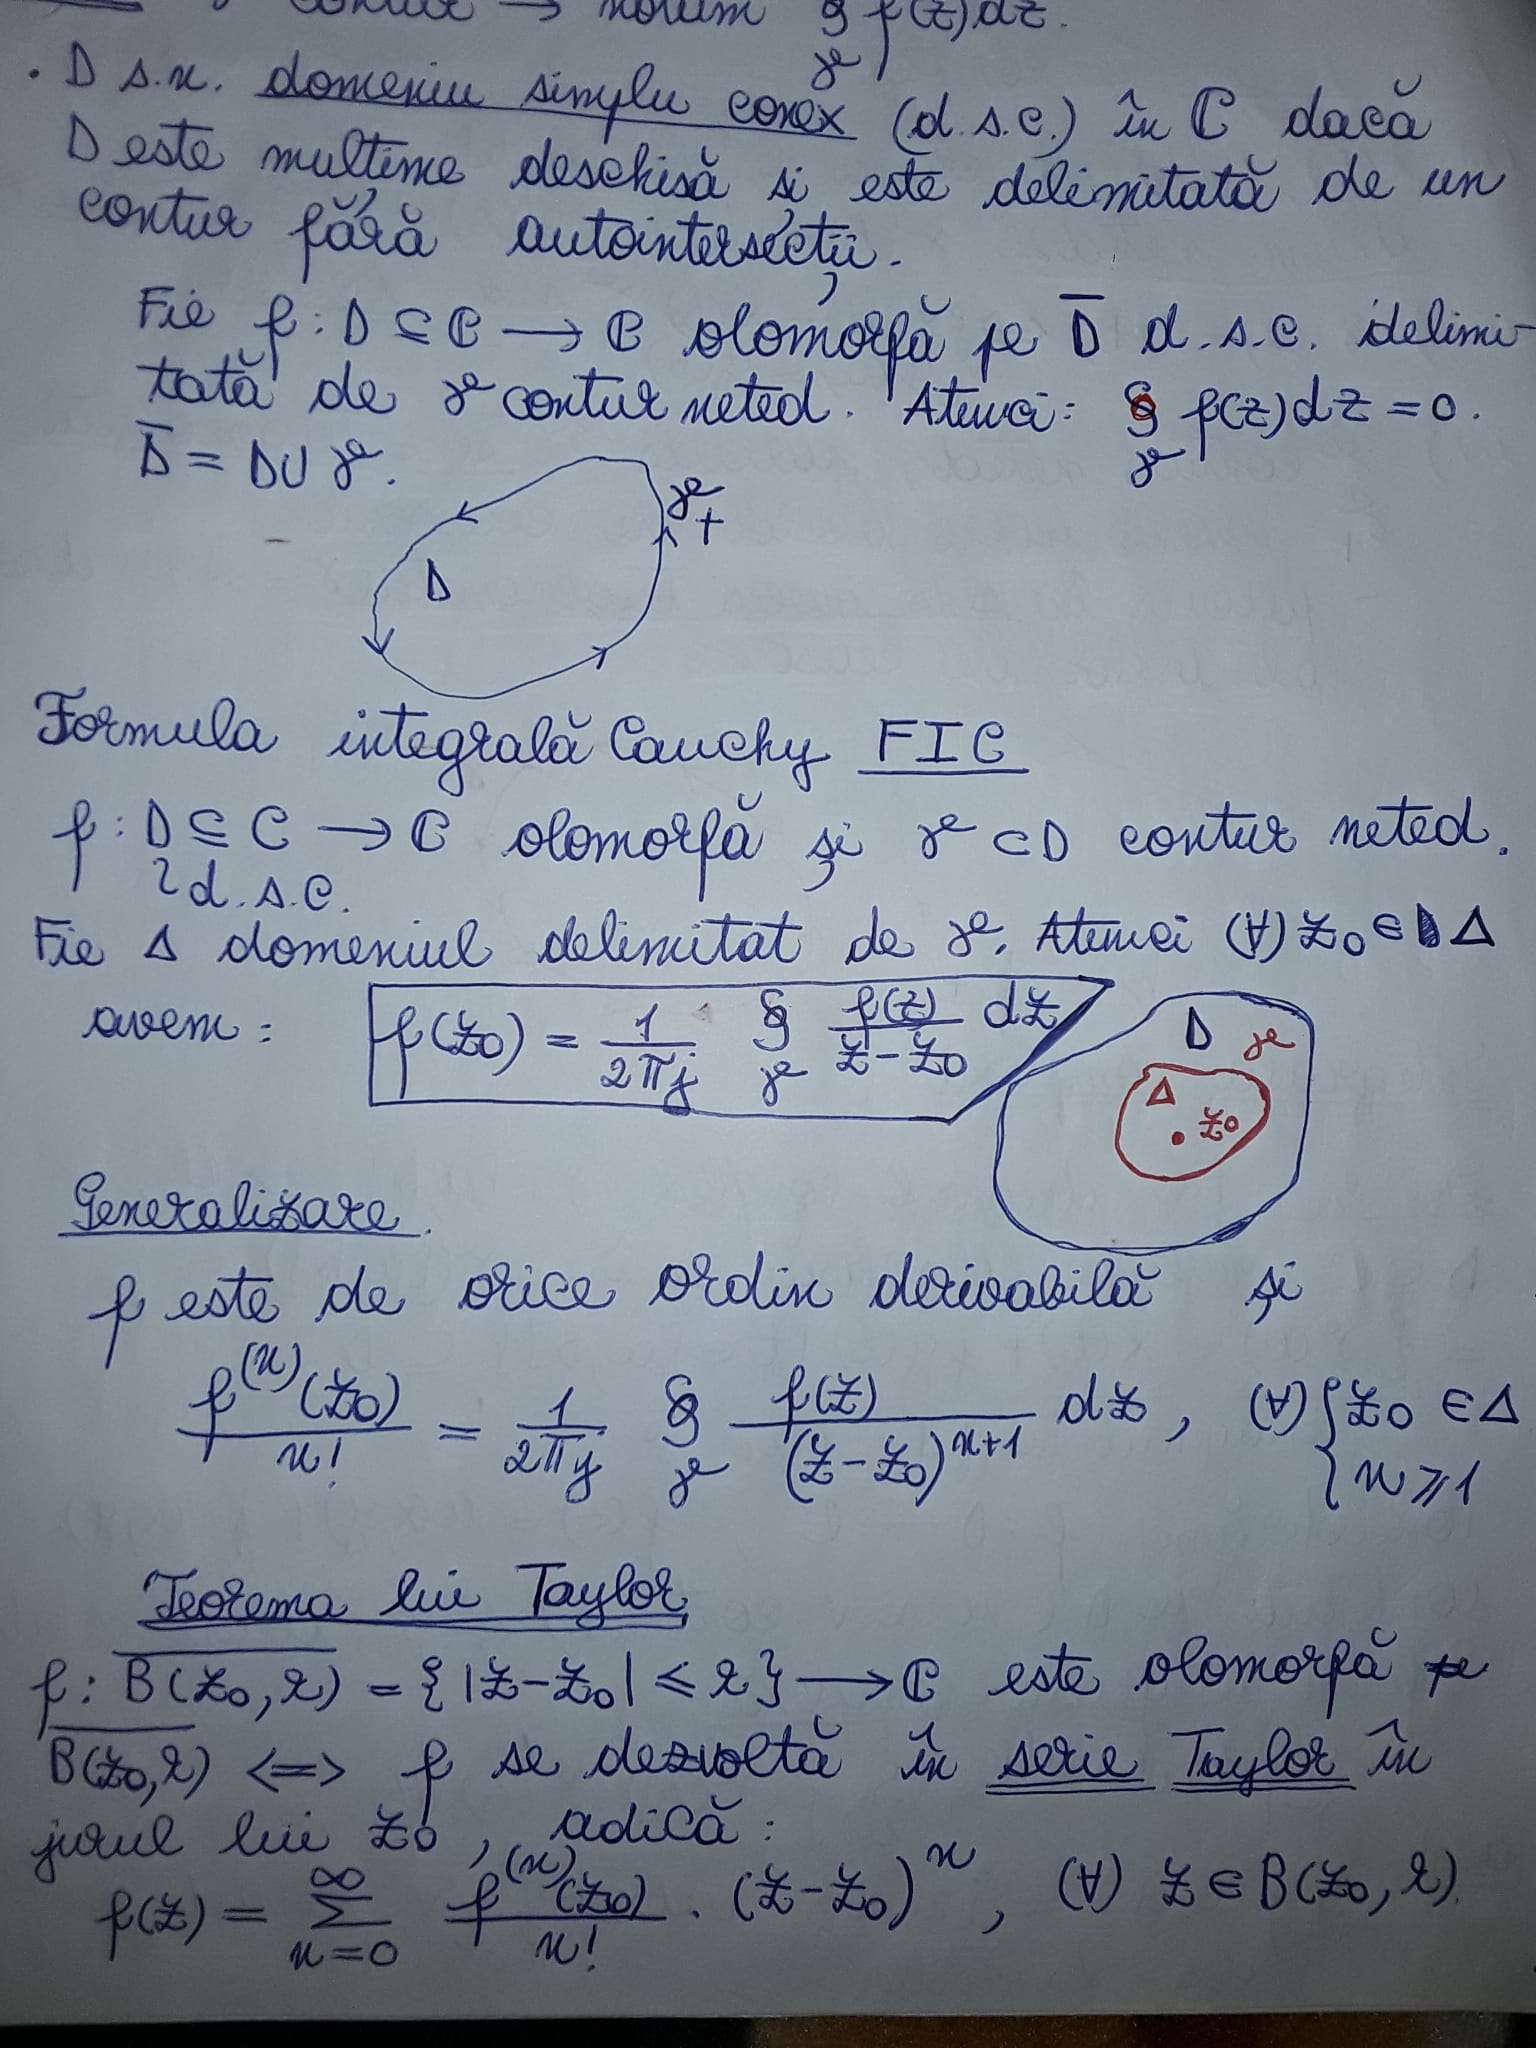 contur → notăm ∮ f(z)dz.
γ
· D s.n. domeniu simplu conex (d.s.c.) în ℂ dacă
D este mulțime deschisă și este delimitată de un
contur fără autointersecții.
Fie f: D ⊆ ℂ → ℂ olomorfă pe D̅ d.s.c. delimi-
tată de γ contur neted. Atunci: ∮ f(z)dz = 0.
γ
D̅ = D∪γ.
γ+
D
Formula integrală Cauchy FIC
f: D ⊆ C → ℂ olomorfă și γ ⊂ D contur neted.
d.s.c.
Fie Δ domeniul delimitat de γ. Atunci (∀) z0 ∈ Δ
avem: f(z0) = 1/(2πj) ∮γ f(z)/(z-z0) dz
D γ
Δ
z0
Generalizare.
f este de orice ordin derivabilă și
f^(n)(z0)/n! = 1/(2πj) ∮γ f(z)/(z-z0)^(n+1) dz, (∀) { z0 ∈ Δ
n ⩾ 1
Teorema lui Taylor
f: \overline{B(z0,r)} = {|z-z0| ⩽ r} → ℂ este olomorfă pe
\overline{B(z0,r)} <=> f se dezvoltă în serie Taylor în
jurul lui z0, adică:
f(z) = ∑_{n=0}^{∞} f^(n)(z0)/n! · (z-z0)^n, (∀) z ∈ B(z0,r).